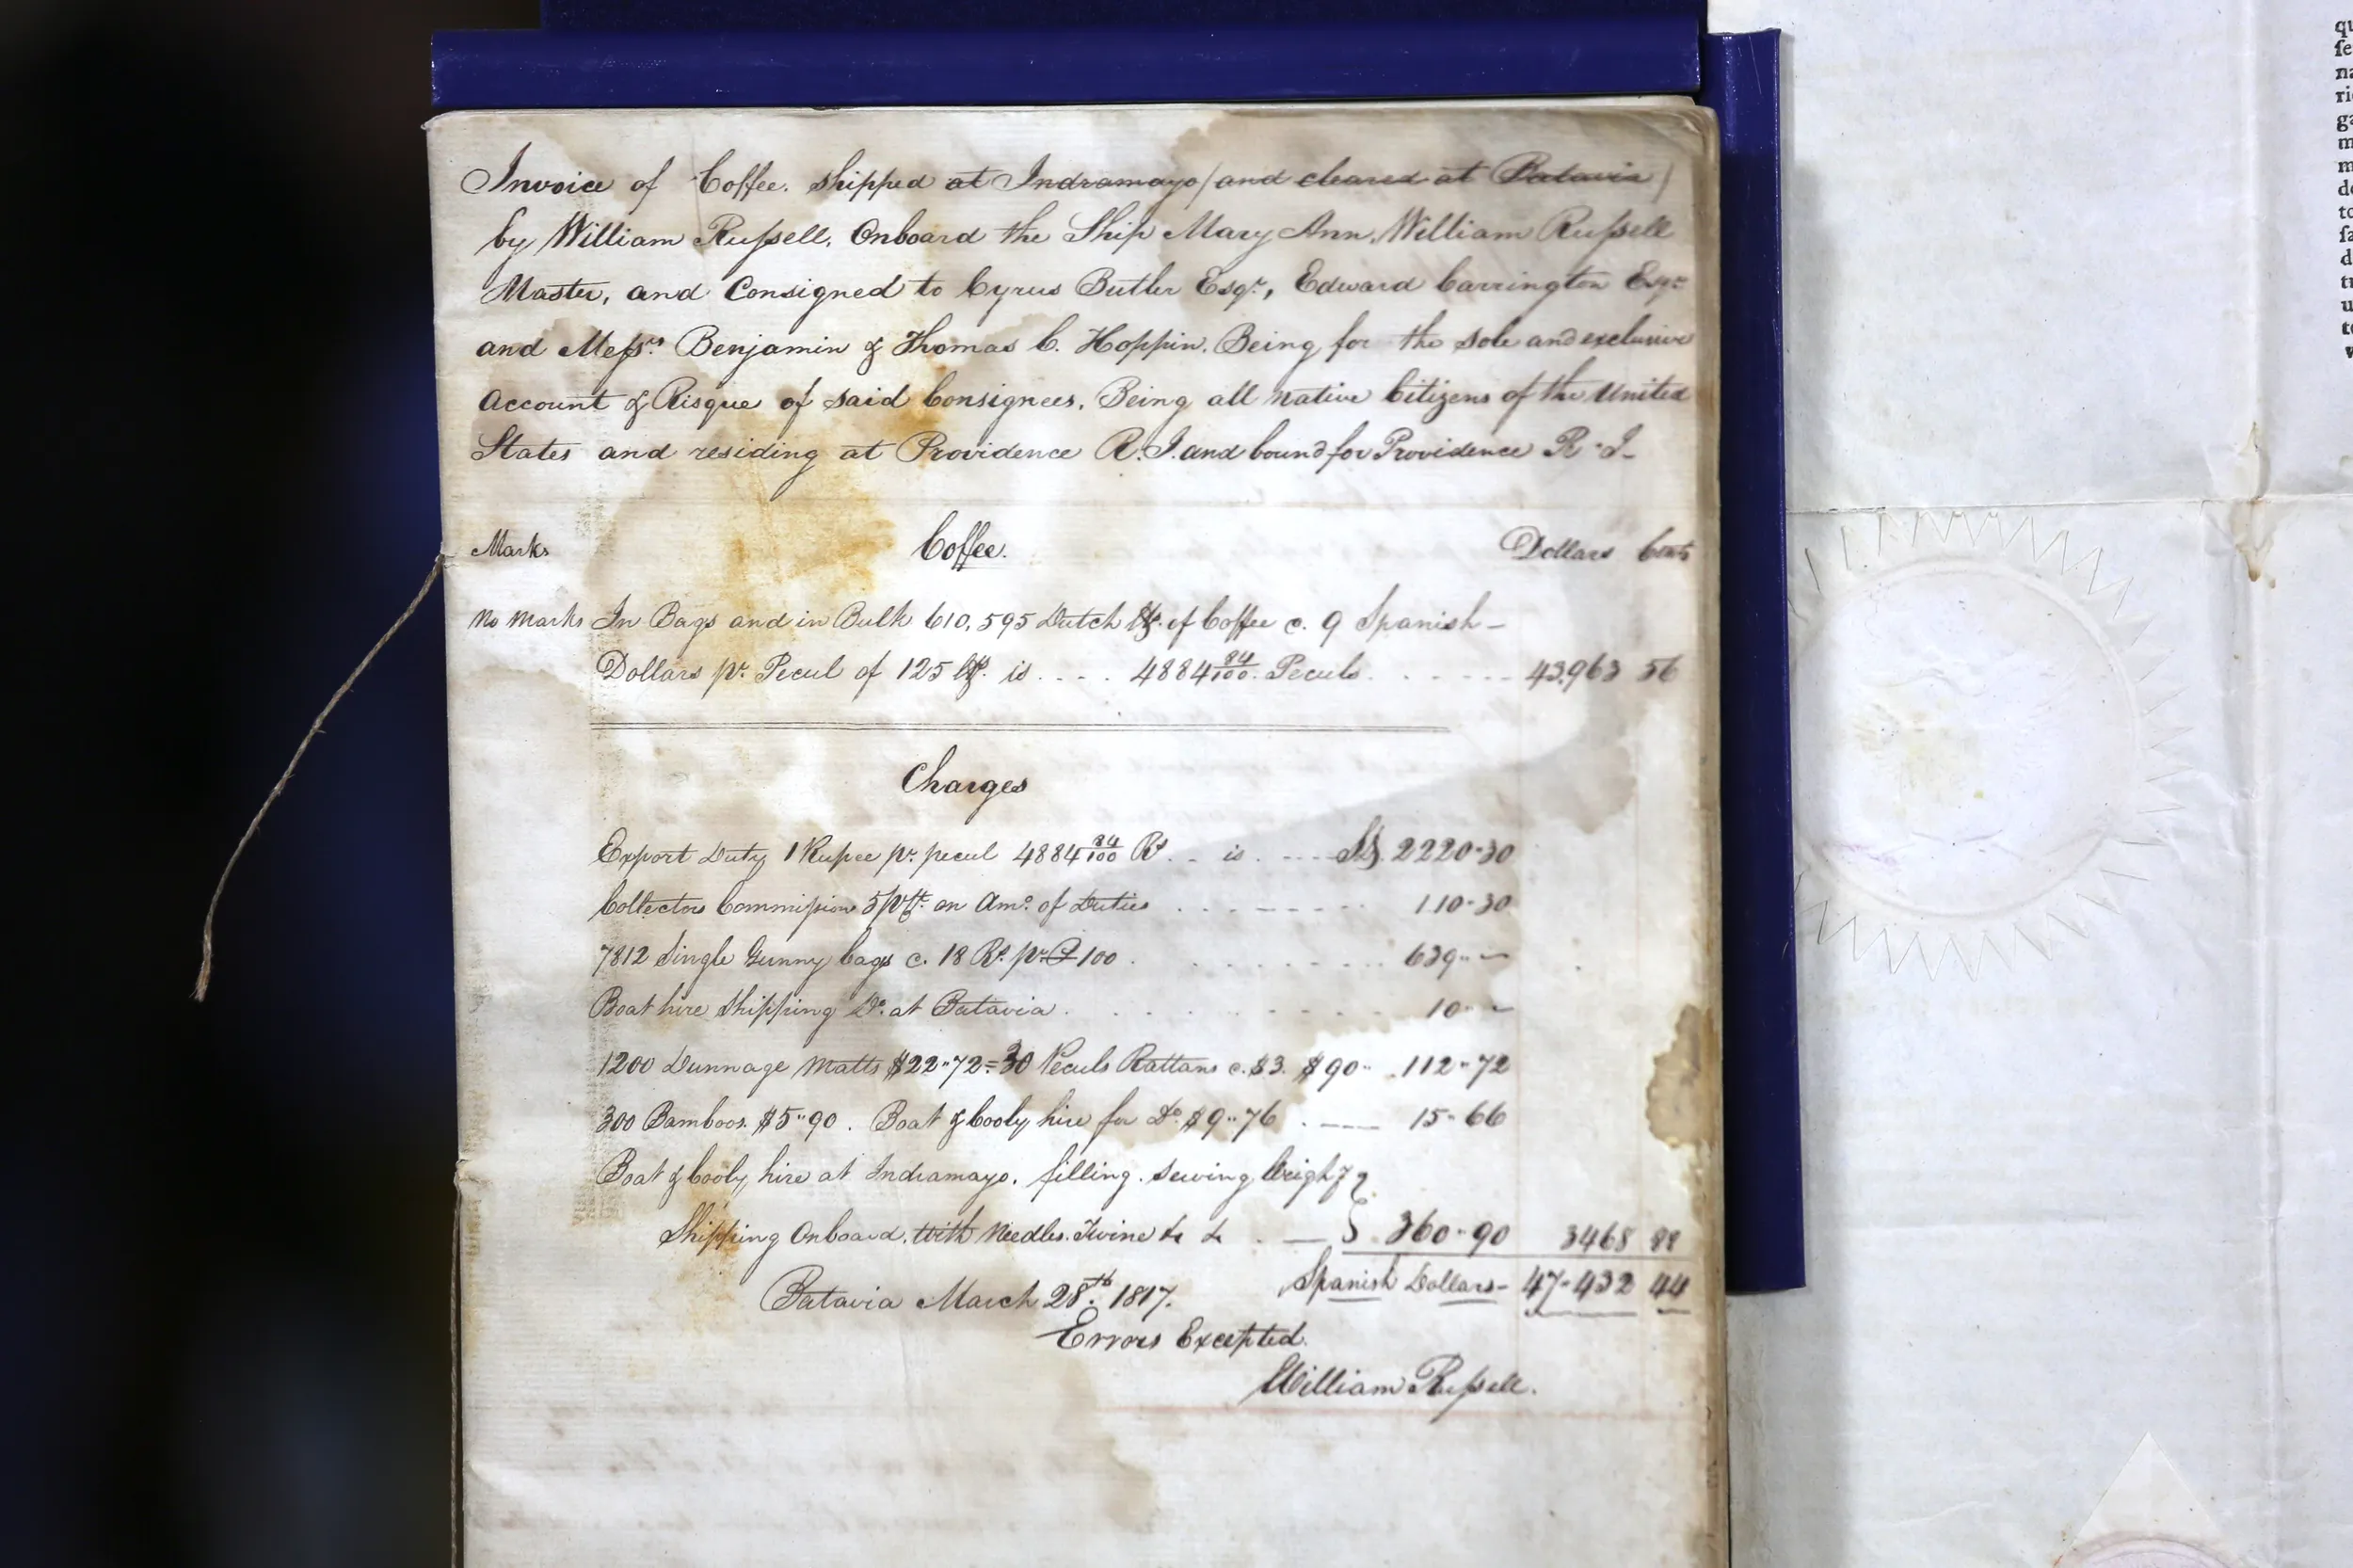 Invoice of Coffee. shipped at Indramayo (and cleared at Batavia)
by William Rufsell, Onboard the Ship Mary Ann, William Rufsell
Master, and Consigned to Cyrus Butler Esqr., Edward Carrington Esqr
and Mefsrs Benjamin & Thomas C. Hoppin. Being for the sole and exclusive
Account & Risque of said Consignees, Being all native Citizens of the United
States and residing at Providence R.I. and bound for Providence R. I_
Marks Coffee. Dollars Cents
No Marks In Bags and in Bulk 610,595 Dutch lbs. of Coffee c. 9 Spanish –
Dollars pr. Pecul of 125 lbs. is .... 4884 84/100 Peculs. ..... 43,963 56
Charges
Export Duty 1 Rupee pr. pecul 4884 84/100 Rs. .. is ..... $ 2220"30
Collectors Commifsion 5 pr Ct. on Amo. of Duties ....... 110"30
7812 Single Gunny bags c. 18 Rs. pr. 100 ........ 639"–
Boat hire Shipping Do. at Batavia ........ 10"–
1200 Dunnage Matts $22"72 = 30 Peculs Rattans c. $3. $90" 112"72
300 Bamboos. $5"90. Boat & Cooly hire for Do. $9"76 .... 15"66
Boat & Cooly hire at Indramayo. filling. sewing Weighg
Shipping Onboard. with Needles. Twine &c &c . — 360"90 3468 88
Batavia March 28th. 1817. Spanish Dollars– 47"432 44
Errors Excepted.
William Rufsell.